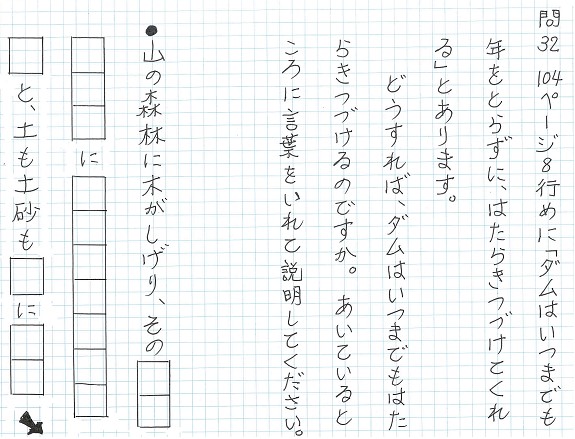 問32 104ページ8行めに「ダムはいつまでも
年をとらずに、はたらきつづけてくれ
る」とあります。
どうすれば、ダムはいつまでもはた
らきつづけるのですか。あいていると
ころに言葉をいれて説明してください。
●山の森林に木がしげり、その□□
□□□に□□□□□□□
□と、土も土砂も□に□□